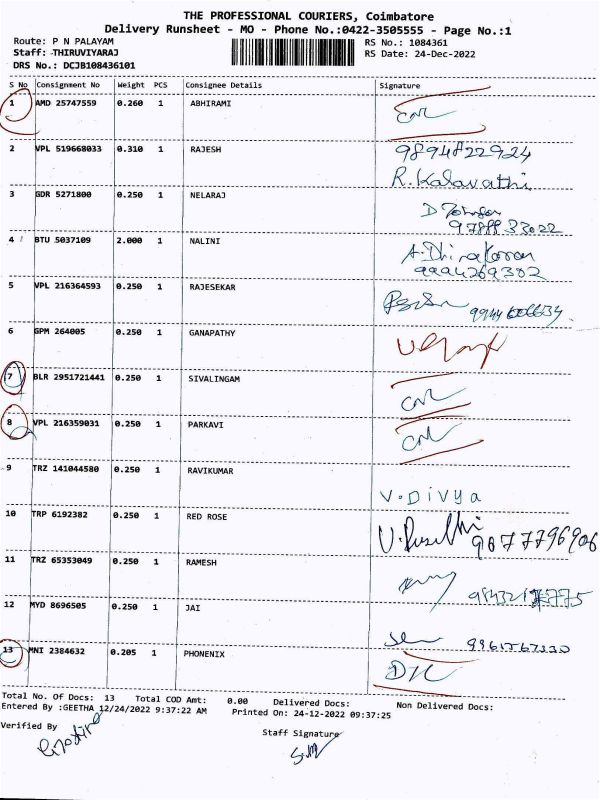 THE PROFESSIONAL COURIERS, Coimbatore
Delivery Runsheet - MO - Phone No.:0422-3505555 - Page No.:1
Route: P N PALAYAM RS No.: 1084361
Staff: THIRUVIYARAJ RS Date: 24-Dec-2022
DRS No.: DCJB108436101
S No Consignment No Weight PCS Consignee Details Signature
1 AMD 25747559 0.260 1 ABHIRAMI
2 VPL 519668033 0.310 1 RAJESH 9894822924
R. Kalavathi
3 GDR 5271800 0.250 1 NELARAJ
4 BTU 5037109 2.000 1 NALINI A. Dhinakaran
9994269302
5 VPL 216364593 0.250 1 RAJESEKAR
6 GPM 264005 0.250 1 GANAPATHY
7 BLR 2951721441 0.250 1 SIVALINGAM
8 VPL 216359031 0.250 1 PARKAVI
9 TRZ 141044580 0.250 1 RAVIKUMAR
V. Divya
10 TRP 6192382 0.250 1 RED ROSE
11 TRZ 65353049 0.250 1 RAMESH
12 MYD 8696505 0.250 1 JAI
13 MNI 2384632 0.205 1 PHONENIX
Total No. Of Docs: 13 Total COD Amt: 0.00 Delivered Docs: Non Delivered Docs:
Entered By :GEETHA 12/24/2022 9:37:22 AM Printed On: 24-12-2022 09:37:25
Verified By Staff Signature